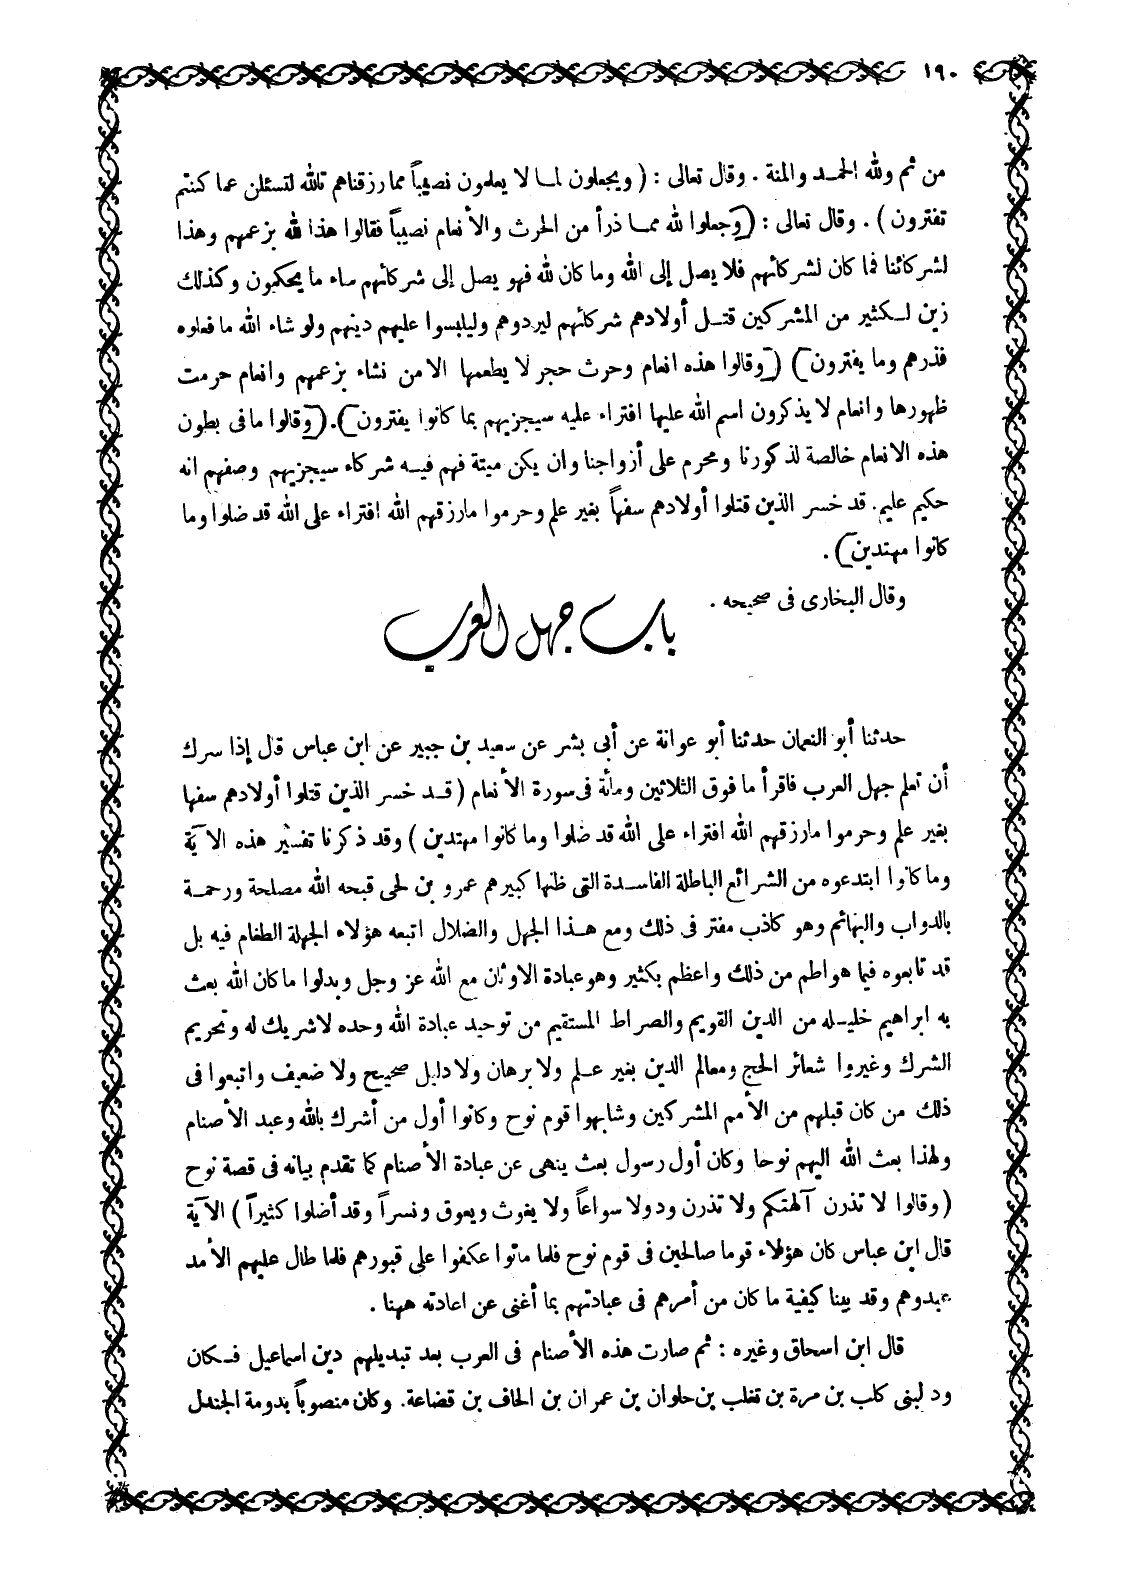 ١٩٠
من ثم ولله الحمد والمنة . وقال تعالى : ( ويجعلون لما لا يعلمون نصيباً مما رزقناهم تالله لتسئلن عما كنتم
تفترون ) . وقال تعالى : ( وجعلوا لله مما ذرأ من الحرث والأنعام نصيباً فقالوا هذا لله بزعمهم وهذا
لشركائنا فما كان لشركائهم فلا يصل إلى الله وما كان لله فهو يصل إلى شركائهم ساء ما يحكمون وكذلك
زين لكثير من المشركين قتل أولادهم شركائهم ليردوهم وليلبسوا عليهم دينهم ولو شاء الله ما فعلوه
فذرهم وما يفترون ) ( وقالوا هذه انعام وحرث حجر لا يطعمها الا من نشاء بزعمهم وانعام حرمت
ظهورها وانعام لا يذكرون اسم الله عليها افتراء عليه سيجزيهم بما كانوا يفترون ) . ( وقالوا ما فى بطون
هذه الانعام خالصة لذكورنا ومحرم على أزواجنا وان يكن ميتة فهم فيه شركاء سيجزيهم وصفهم انه
حكيم عليم . قد خسر الذين قتلوا أولادهم سفهاً بغير علم وحرموا ما رزقهم الله افتراء على الله قد ضلوا وما
كانوا مهتدين ) .
وقال البخارى فى صحيحه .
باب جهل العرب
حدثنا أبو النعمان حدثنا أبو عوانة عن أبى بشر عن سعيد بن جبير عن ابن عباس قال إذا سرك
أن تعلم جهل العرب فاقرأ ما فوق الثلاثين ومأة فى سورة الأنعام ( قد خسر الذين قتلوا أولادهم سفها
بغير علم وحرموا ما رزقهم الله افتراء على الله قد ضلوا وما كانوا مهتدين ) وقد ذكرنا تفسير هذه الآية
وما كانوا ابتدعوه من الشرائع الباطلة الفاسدة التى ظنها كبيرهم عمرو بن لحى قبحه الله مصلحة ورحمة
بالدواب والبهائم وهو كاذب مفتر فى ذلك ومع هذا الجهل والضلال اتبعه هؤلاء الجهلة الطغام فيه بل
قد تابعوه فيما هو اطم من ذلك واعظم بكثير وهو عبادة الاوثان مع الله عز وجل وبدلوا ما كان الله بعث
به ابراهيم خليله من الدين القويم والصراط المستقيم من توحيد عبادة الله وحده لا شريك له وتحريم
الشرك وغيروا شعائر الحج ومعالم الدين بغير علم ولا برهان ولا دليل صحيح ولا ضعيف واتبعوا فى
ذلك من كان قبلهم من الأمم المشركين وشابهوا قوم نوح وكانوا أول من أشرك بالله وعبد الأصنام
ولهذا بعث الله اليهم نوحا وكان أول رسول بعث ينهى عن عبادة الأصنام كما تقدم بيانه فى قصة نوح
( وقالوا لا تذرن آلهتكم ولا تذرن ود ولا سواعاً ولا يغوث ويعوق ونسراً وقد أضلوا كثيراً ) الآية
قال ابن عباس كان هؤلاء قوما صالحين فى قوم نوح فلما ماتوا عكفوا على قبورهم فلما طال عليهم الأمد
عبدوهم وقد بينا كيفية ما كان من أمرهم فى عبادتهم بما أغنى عن اعادته ههنا .
قال ابن اسحاق وغيره : ثم صارت هذه الأصنام فى العرب بعد تبديلهم دين اسماعيل فكان
ود لبنى كلب بن مرة بن تغلب بن حلوان بن عمران بن الحاف بن قضاعة . وكان منصوباً بدومة الجندل